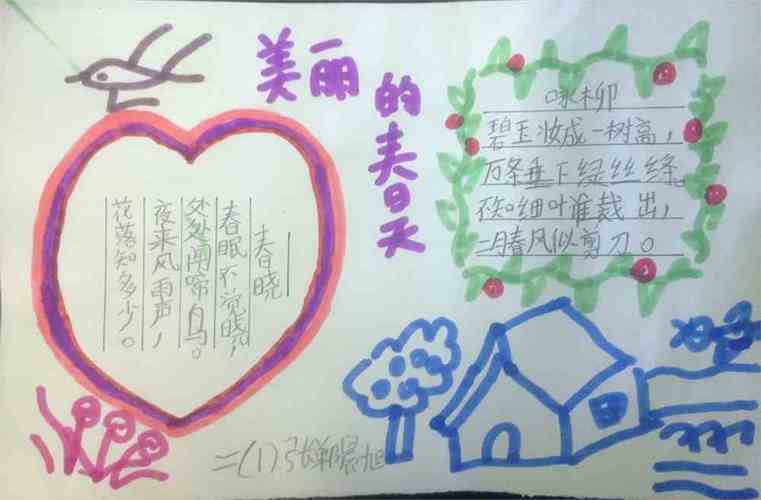 美丽的春天
春晓
春眠不觉晓,
处处闻啼鸟。
夜来风雨声,
花落知多少。
咏柳
碧玉妆成一树高,
万条垂下绿丝绦
不知细叶谁裁出,
二月春风似剪刀。
二(1)张